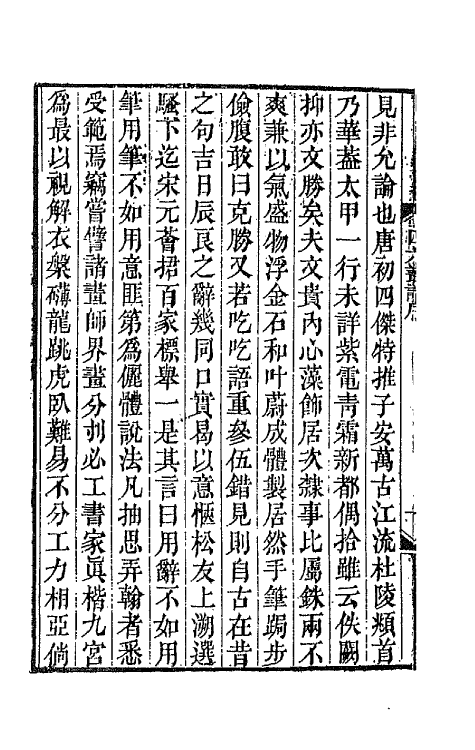 見非允論也唐初四傑特推子安萬古江流杜陵頫首
乃華葢太甲一行未詳紫電青霜新都偶拾雖云佚闕
抑亦文勝矣夫文貴內心藻飾居次隸事比屬銖兩不
爽兼以氣盛物浮金石和叶蔚成體製居然手筆跼步
儉腹敢曰克勝又若吃吃語重參伍錯見則自古在昔
之句吉日辰良之辭幾同口實曷以意愜松友上溯選
騷下迄宋元薈捃百家標舉一是其言曰用辭不如用
筆用筆不如用意匪第為儷體說法凡抽思弄翰者悉
受範焉竊嘗譬諸畫師界畫分刌必工書家眞楷九宮
為最以視解衣槃礴龍跳虎臥難易不分工力相亞倘